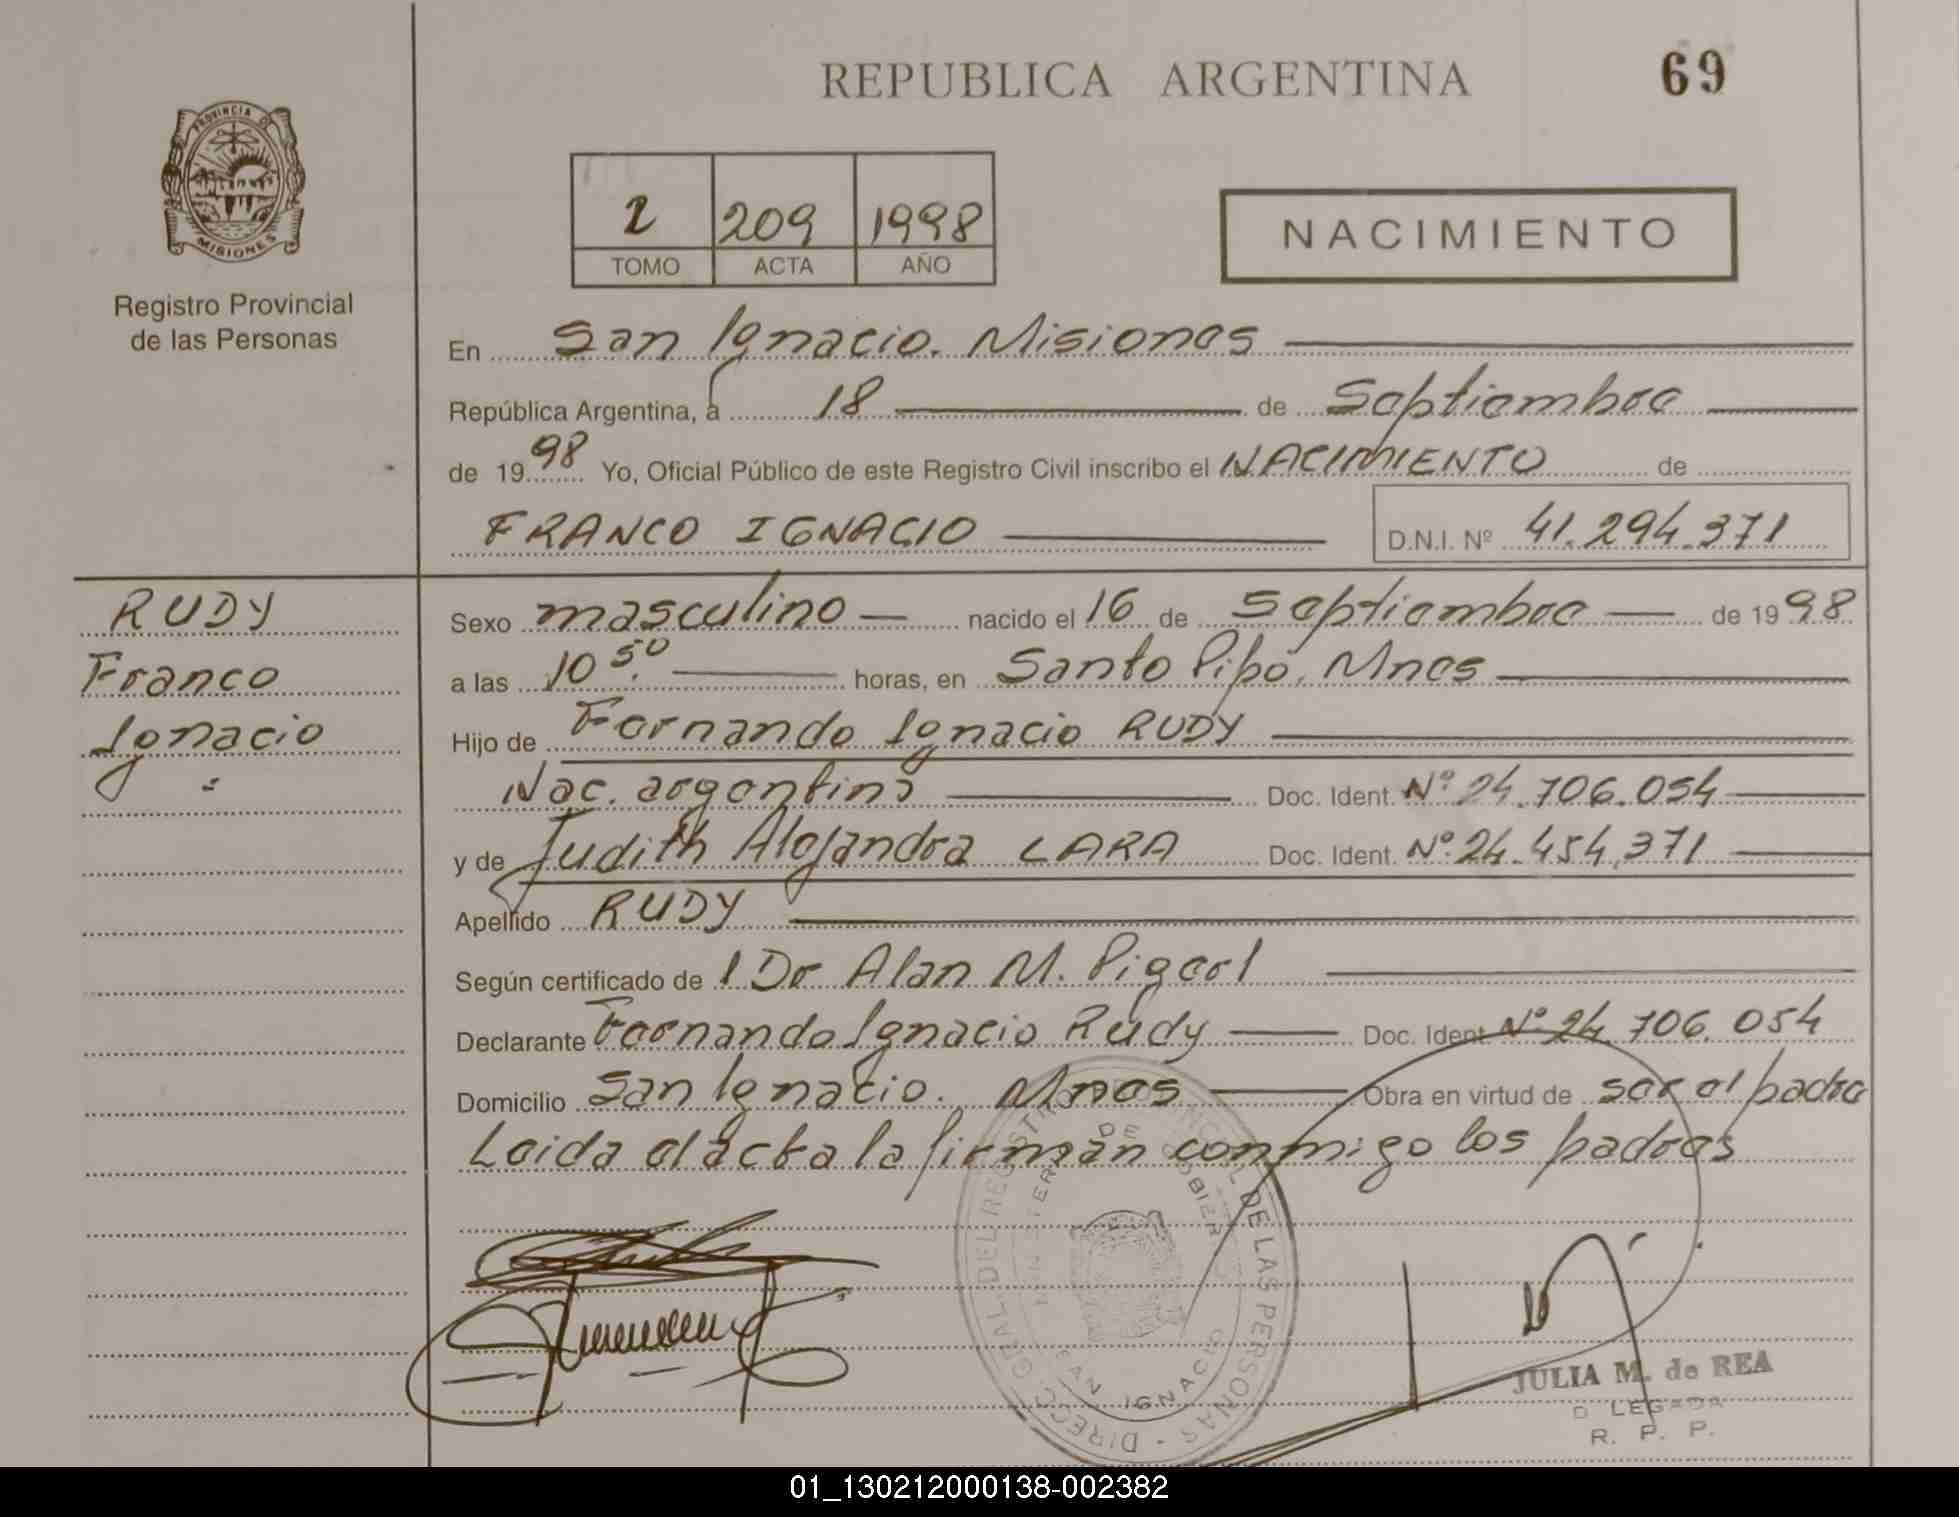 REPUBLICA ARGENTINA
69
PROVINCIA D
MISIONES
Registro Provincial
de las Personas
2 209 1998
TOMO ACTA AÑO
NACIMIENTO
En San Ignacio. Misiones
República Argentina, a 18 de Septiembre
de 1998 Yo, Oficial Público de este Registro Civil inscribo el NACIMIENTO de
FRANCO IGNACIO D.N.I. Nº 41.294.371
RUDY
Franco
Ignacio
Sexo masculino nacido el 16 de Septiembre de 1998
a las 10 50. horas, en Santo Pipó, Mnes
Hijo de Fernando Ignacio RUDY
Nac. argentina Doc. Ident. Nº 24.706.054
y de Judith Alejandra LARA Doc. Ident. Nº 24.454.371
Apellido RUDY
Según certificado de Dr Alan M.
Declarante Fernando Ignacio Rudy Doc. Ident. Nº 24.706.054
Domicilio San Ignacio. Mnes Obra en virtud de ser el padre
Leida el acta la firman conmigo los padres
DIRECC. GRAL. DEL REGISTRO DE LAS PERSONAS
SAN IGNACIO
JULIA M. de REA
D LEGADA
R. P. P.
01_130212000138-002382